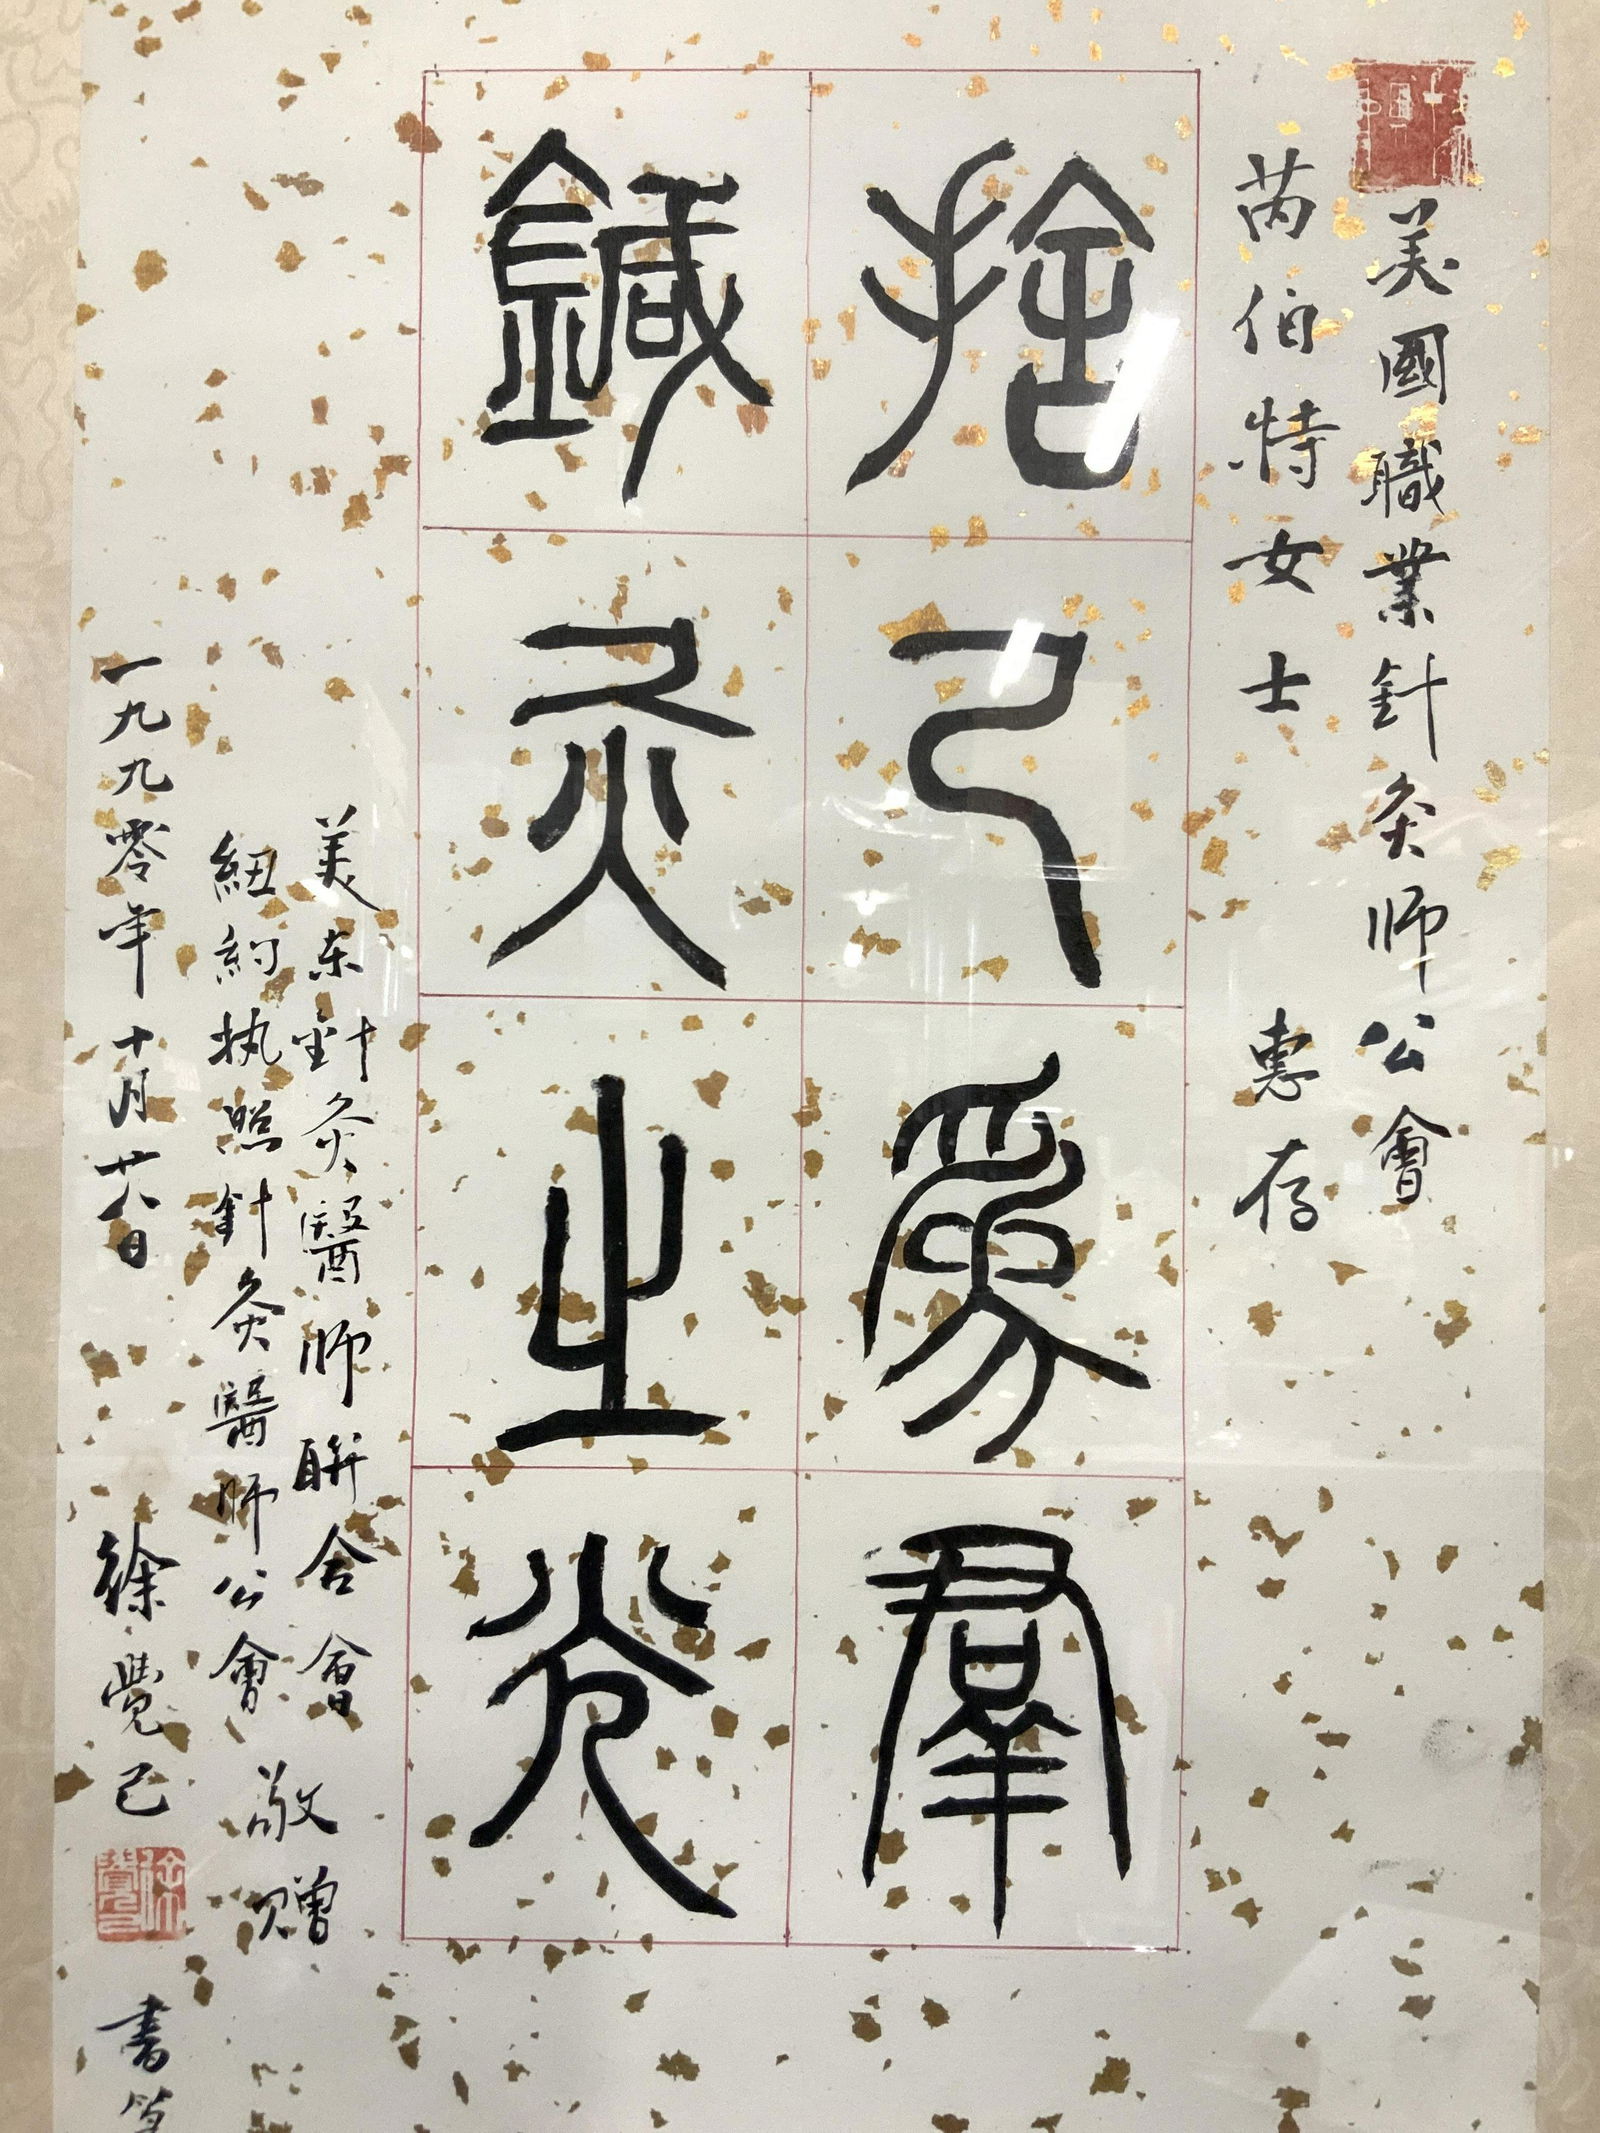 美國職業針灸師公會
芮伯特女士 惠存
捨己為群
鍼灸之光
美东針灸醫師联合會
紐約执照針灸醫師公會
敬赠
一九九零年十月廿八日 徐覺己
書